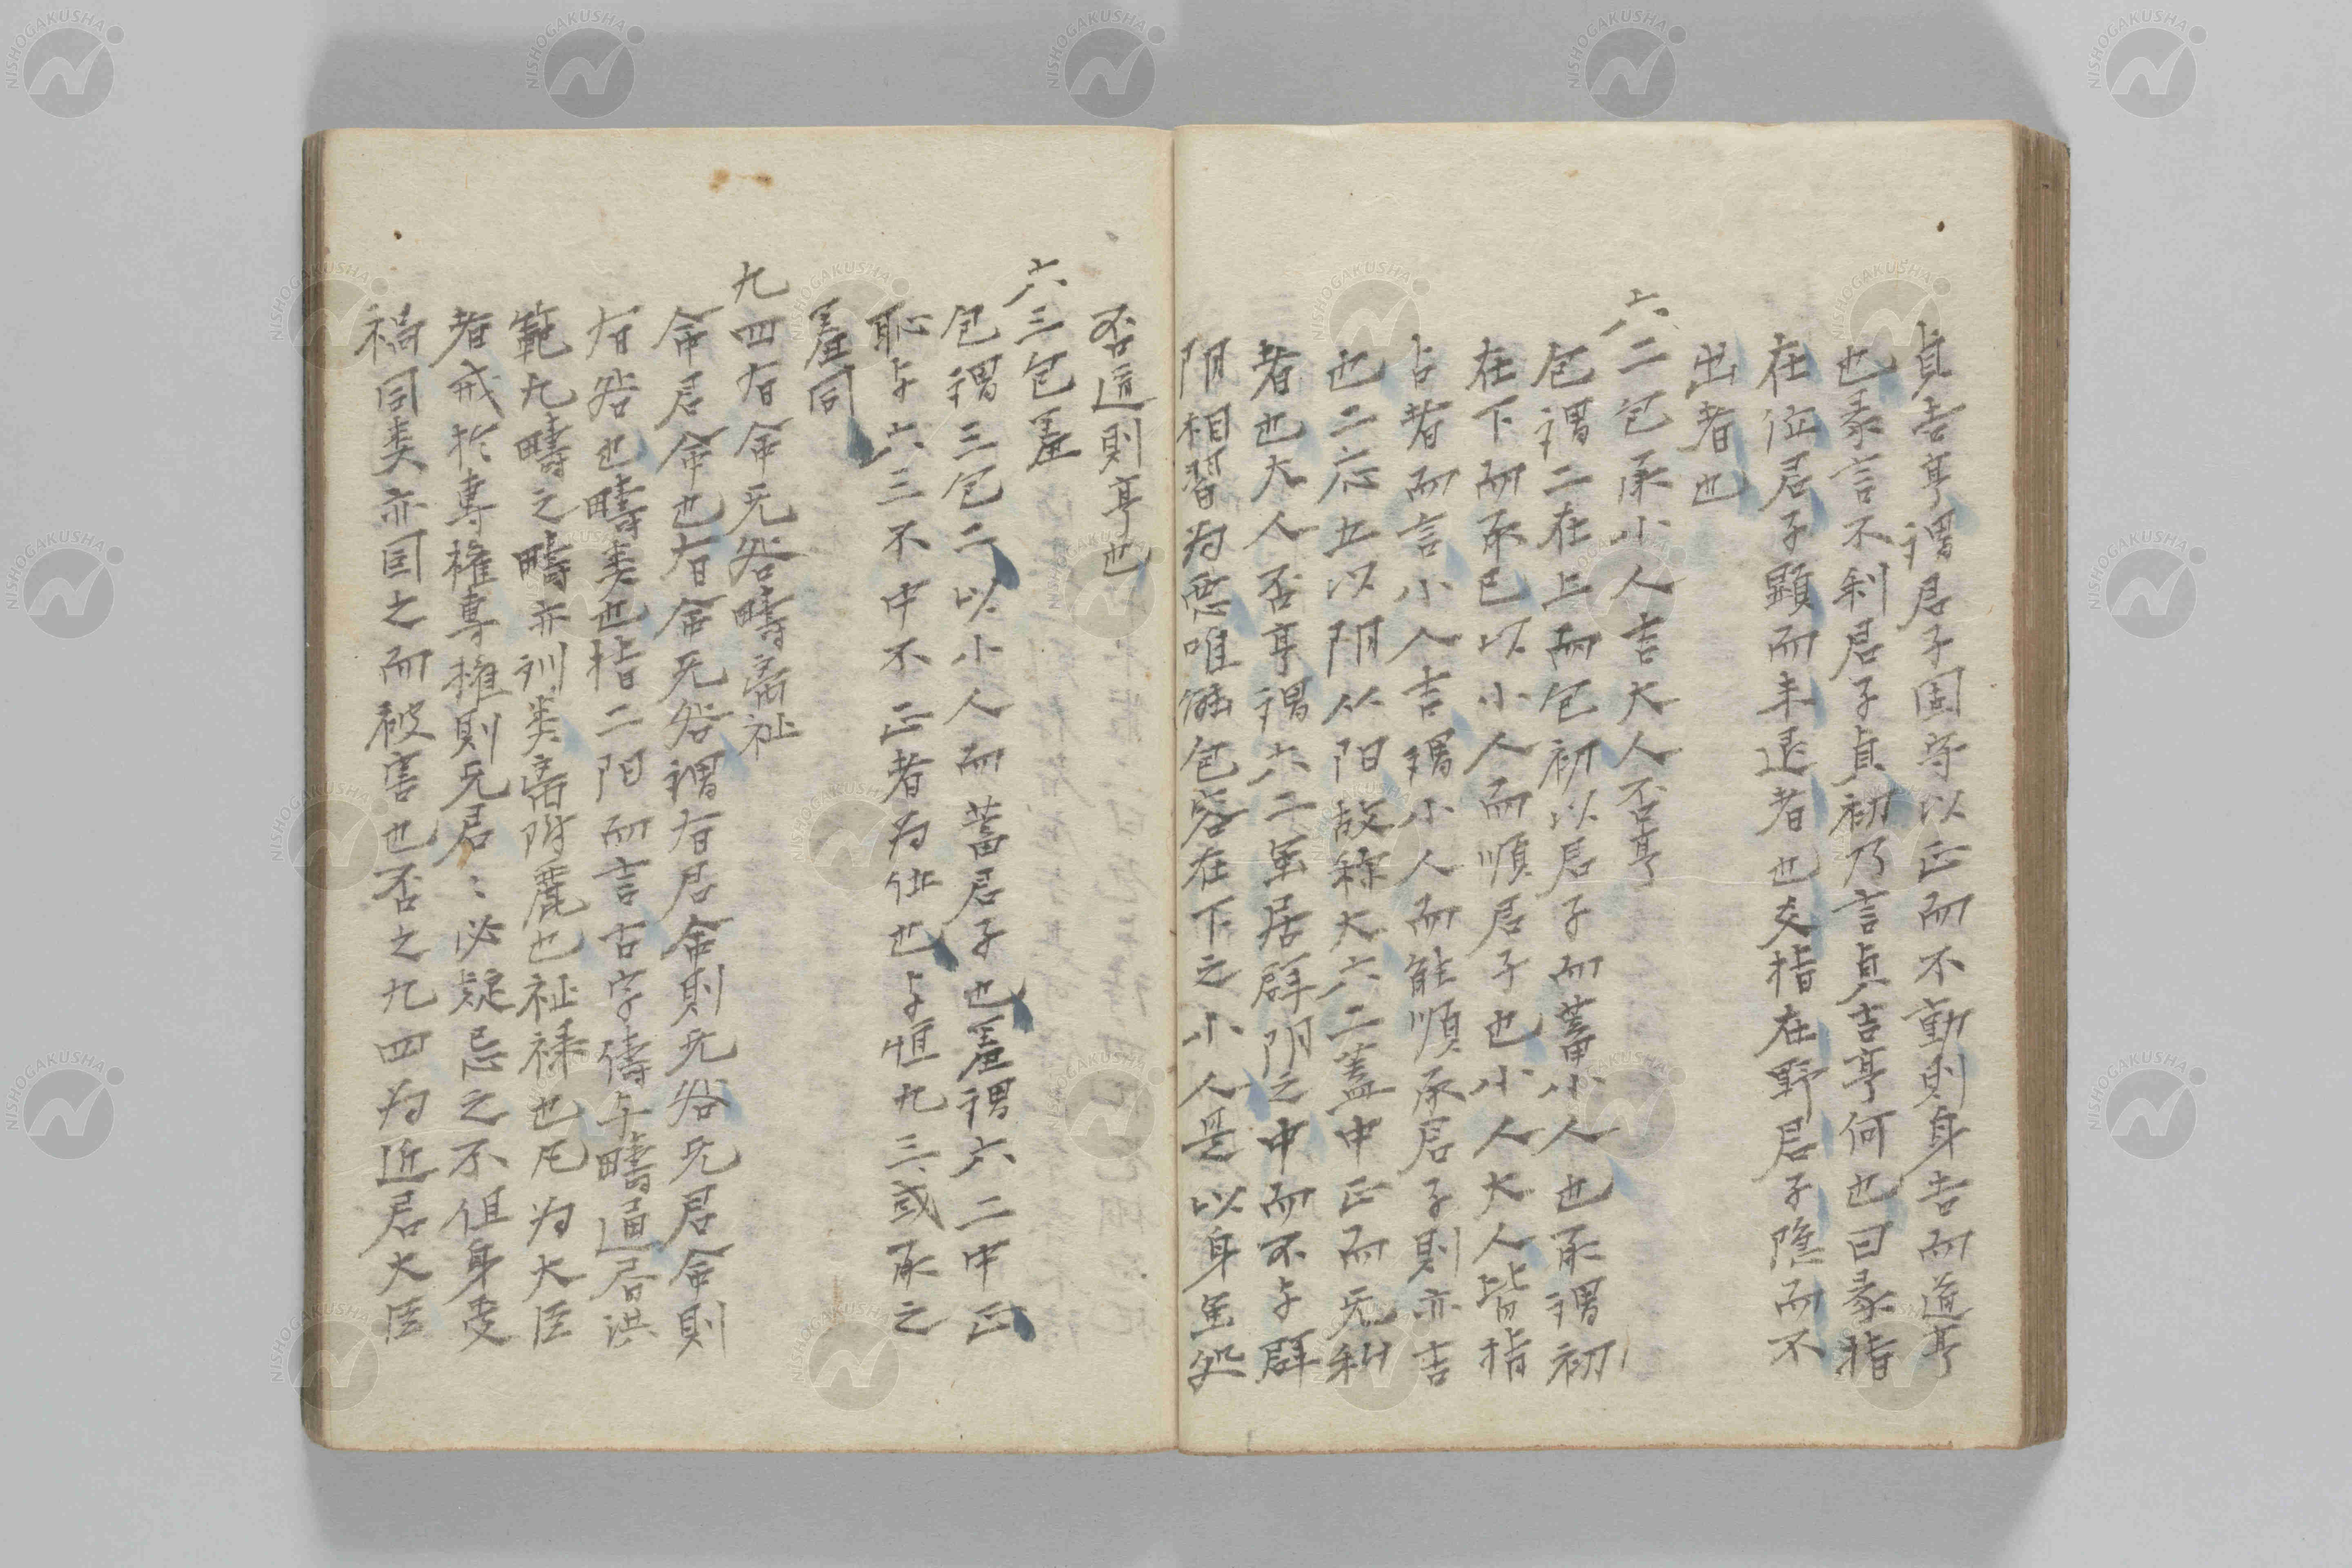 貞吉亨謂君子固守以正而不動則身吉而道亨
也彖言不利君子貞初乃言貞吉亨何也曰彖指
在位君子顕而未退者也爻指在野君子隠而不
出者也
六二包承小人吉大人否亨
包謂二在上而包初以君子而蓄小人也承謂初
在下而承已以小人而順君子也小人大人皆指
占者而言小人吉謂小人而能順承君子則亦吉
也二応五以阴从阳故称大六二蓋中正而无私
者也大人否亨謂六二虽居群阴之中而不与群
阴相習为悪唯能包容在下之小人是以身虽処
否道則亨也
六三包羞
包謂三包二以小人而蓄君子也羞謂六二中正
恥与六三不中不正者为仕也与恒九三或承之
羞同
九四有命无咎疇离祉
命君命也有命无咎謂有君命則无咎无君命則
有咎也疇类也指二阳而言古字儔与疇通居洪
範九疇之疇亦訓类离附麗也祉禄也凡为大臣
者戒於専権専権則无君〻必疑忌之不但身受
禍同类亦因之而被害也否之九四为近君大臣
NISHOGAKUSHA